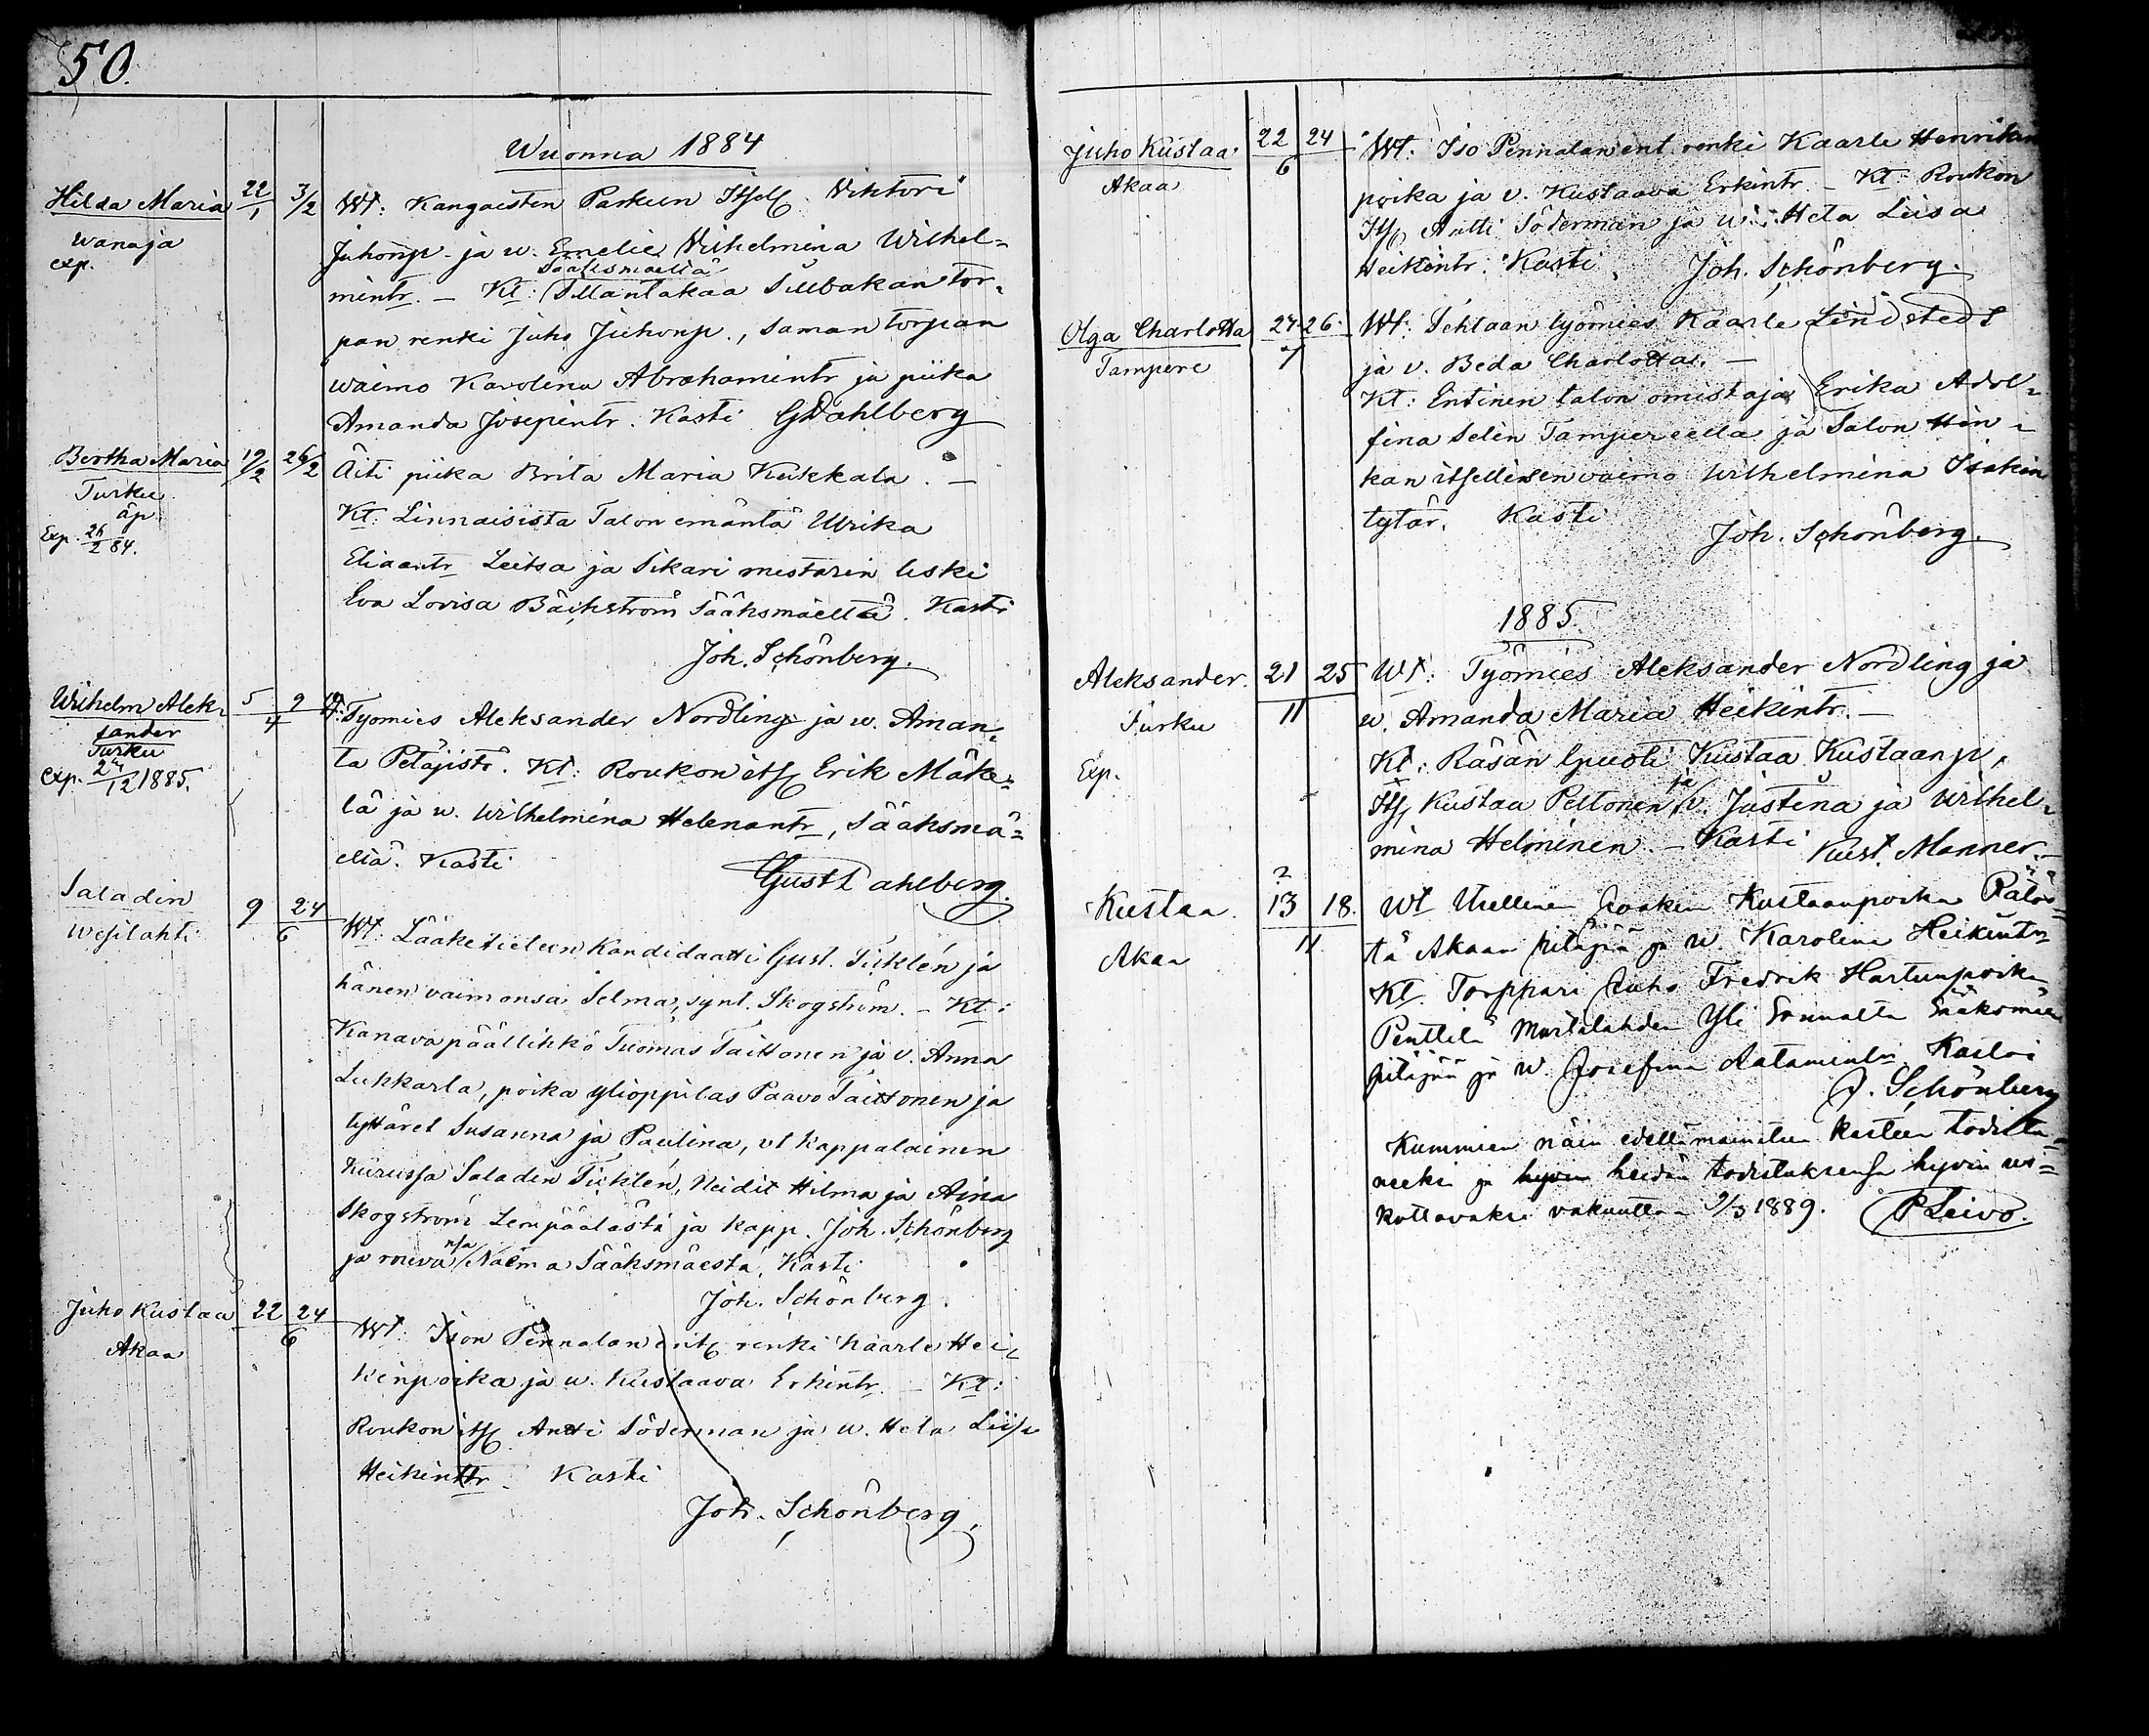 50.
Wuonna 1884
Hilda Maria 22/1 3/2 Wt: Kangaisten Parkun Itsell. Viktori
Wanaja Juhonp. ja w. Emelie Wilhelmina Wilhel=
exp. Sääksmäeltä
mintr. – Kt: Sillantakaa Sillbakan tor=
pan renki Juho Juhonp., saman torpan
waimo Karolina Abrahamintr ja piika
Amanda Josepintr. Kasti GDahlberg
Bertha Maria 19/2 26/2 Äiti piika Brita Maria Kukkala. –
Turku Kt: Linnaisista Talon emäntä Ulrika
äp.
Exp. 26/2 84. Eliaantr Leitsa ja Sikari mestarin leski
Eva Lovisa Bäckström Sääksmäeltä. Kasti
Joh. Schönberg.
Wilhelm Alek= 5 9/4 Wt: Tyomies Aleksander Nordling ja w. Aman=
sander
Turku ta Petäjistö. Kt: Roukon its. Erik Mäke=
exp. 2/12 1885. lä ja w. Wilhelmina Helenantr, Sääksmä=
eltä. Kasti Gust Dahlberg.
Saladin 9 24/6 Wt: Lääketieteen Kandidaatti Gust. Ticklén ja
Wesilahti hänen vaimonsa Selma, synt. Skogström. – Kt:
Kanavapäällikkö Tuomas Taittonen ja v. Anna
Lukkarla, poika ylioppilas Paavo Taittonen ja
tyttäret Susanna ja Paulina, vt kappalainen
Kurussa Saladin Ticklén, Neidit Hilma ja Aina
Skogström Lempäälästä ja kapp. Joh. Schönberg
ja rouvansa Naëma Sääksmäestä, Kasti
Joh. Schönberg.
Juho Kustaa 22 24/6 Wt: Ison Pennalan ent. renki Kaarle Hei=
Akaa kinpoika ja w. Kustaava Erkintr. – Kt:
Roukon its. Antti Söderman ja w. Heta Liisa
Heikinttr. Kasti
Joh. Schönberg.
Juho Kustaa 22/6 24 Wt: Iso Pennalan ent. renki Kaarle Henrikin
Akaa poika ja v. Kustaava Erkintr. – Kt: Roukon
Its. Antti Söderman ja w. Heta Liisa
Heikintr. Kasti Joh. Schönberg.
Olga Charlotta 24 26/7 Wt: Tehtaan työmies Kaarle Lindstedt
Tampere ja v. Beda Charlotta. –
Kt: Entinen talon omistaja Erika Adol=
fina Selin Tampereella ja Talon Hin=
kan itsellisen vaimo Wilhelmina Isakin
tytär. Kasti
Joh. Schönberg.
1885.
Aleksander 21 25/11 Wt: Työmies Aleksander Nordling ja
Turku w. Amanda Maria Heikintr. –
Exp. Kt: Räsän Kustaa Kustaanp,
Its. Kustaa Peltonen ja v. Justina ja Wilhel=
mina Helminen. – Kasti Kust. Manner. –
Kustaa ? 13 18/11 Wt Joakim Kustaanpoika
Akaa tä Akaan pitäjää ja w. Karolina Heikintr
Kt. Torppari Juho Fredrik
Penttilä Yli Sääksmäen
pitäjää ja w. Josefina Aatamintr. Kastoi
J. Schönberg
Kummien näin edellämainitun kasteen todista=
neeksi ja hyvin heidän todistuksensa hyvin us=
kottavaksi vakuuttaa 9/3 1889. P Leivo.